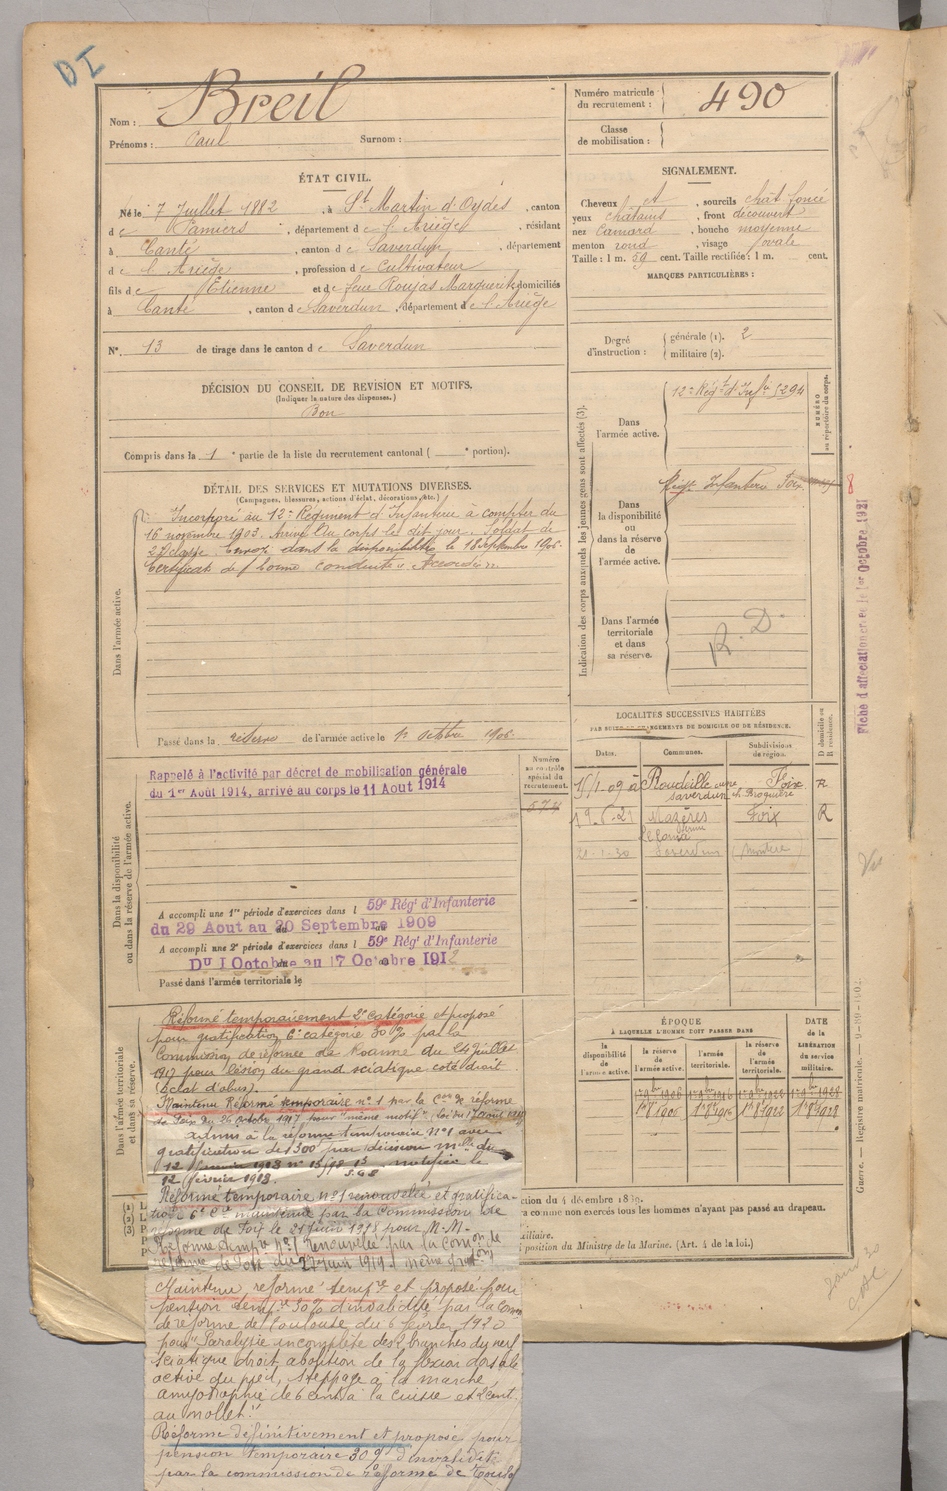 DI
Nom : Breil
Prénoms : Paul Surnom :
Numéro matricule du recrutement : 490
Classe de mobilisation :
ÉTAT CIVIL.
Né le 7 Juillet 1882, à St Martin d'Oydes, canton
de Pamiers, département de l'Ariège, résidant
à Canté, canton de Saverdun, département
de l'Ariège, profession de Cultivateur
fils de Etienne et de feue Roujas Marguerite, domiciliés
à Canté, canton de Saverdun, département de l'Ariège
N° 13 de tirage dans le canton de Saverdun
SIGNALEMENT.
Cheveux sourcils chât. foncé
yeux châtains, front découvert
nez Camard, bouche moyenne
menton rond, visage ovale
Taille : 1 m. 59 cent. Taille rectifiée : 1 m. cent.
MARQUES PARTICULIÈRES :
Degré d'instruction : générale (1). 2
militaire (2).
DÉCISION DU CONSEIL DE REVISION ET MOTIFS.
(Indiquer la nature des dispenses.)
Bon
Compris dans la 1e partie de la liste du recrutement cantonal ( e portion).
DÉTAIL DES SERVICES ET MUTATIONS DIVERSES.
(Campagnes, blessures, actions d'éclat, décorations, etc.)
Dans l'armée active.
Incorporé au 12e Régiment d'Infanterie à compter du
16 novembre 1903. Arrivé au corps le dit jour. Soldat de
2e classe. Envoyé dans la disponibilité le 18 septembre 1906.
Certificat de "bonne conduite" Accordé.
Passé dans la réserve de l'armée active le 1er octobre 1906.
Indication des corps auxquels les jeunes gens sont affectés (3).
NUMÉRO au répertoire du corps.
Dans l'armée active.
12e Régt d'Infie 5294
Dans la disponibilité ou dans la réserve de l'armée active.
Régt Infanterie Foix
8
Dans l'armée territoriale et dans sa réserve.
R. D.
Fiche d'affectation créée le 1er Octobre 1921
Dans la disponibilité ou dans la réserve de l'armée active.
Numéro au contrôle spécial du recrutement.
Rappelé à l'activité par décret de mobilisation générale
du 1er Août 1914, arrivé au corps le 11 Aout 1914
A accompli une 1re période d'exercices dans l 59e Régt d'Infanterie
du 29 Aout au 20 Septembre 1909
A accompli une 2e période d'exercices dans l 59e Régt d'Infanterie
Du 1 Octobre au 17 Octobre 1912
Passé dans l'armée territoriale le
LOCALITÉS SUCCESSIVES HABITÉES
PAR SUITE DE CHANGEMENTS DE DOMICILE OU DE RÉSIDENCE.
Dates. Communes. Subdivisions de région. D domicile ou R résidence.
Foix R
19-6-21 Mazères Foix R
21-1-30 Saverdun
ÉPOQUE
À LAQUELLE L'HOMME DOIT PASSER DANS
DATE de la LIBÉRATION du service militaire.
la disponibilité de l'armée active. la réserve de l'armée active. l'armée territoriale. la réserve de l'armée territoriale.
Dans l'armée territoriale et dans sa réserve.
Réformé temporairement 2e catégorie et proposé
pour gratification 6e catégorie 30% par la
Commission de réforme de Roanne du Juillet
1917 pour lésion du grand sciatique coté droit
(éclat d'obus).
Maintenu Réformé temporaire n° 1 par la Con de réforme
de Foix du 26 octobre 1917 pour "même motif".
admis à la réforme temporaire N°1 avec
gratification de 300 par décision mlle du
notifiée le
12 février 1918.
Réformé temporaire n°1 renouvelée et gratifica-
tion 6e Cie maintenue par la Commission de
réforme de Foix le 21 juin 1918 pour M.M.
Réforme tempre n°1 renouvelée par la Comon de
réforme de Foix du 27 juin 1919
Maintenu réformé tempre et proposé pour
pension tempre 30% d'invalidité par la Comon
de réforme de Toulouse du 6 février 1920
pour "Paralysie incomplète des 2 branches du nerf
sciatique droit, abolition de la flexion dorsale
active du pied, steppage à la marche,
amyotrophie de 6 cent à la cuisse et 2 cent.
au mollet."
Réformé définitivement et proposé pour
pension temporaire 30% d'invalidité
par la commission de réforme de Toulo
ction du 4 décembre 1889.
ra comme non exercés tous les hommes n'ayant pas passé au drapeau.
ilitaire.
position du Ministre de la Marine. (Art. 4 de la loi.)
Guerre. — Registre matricule.